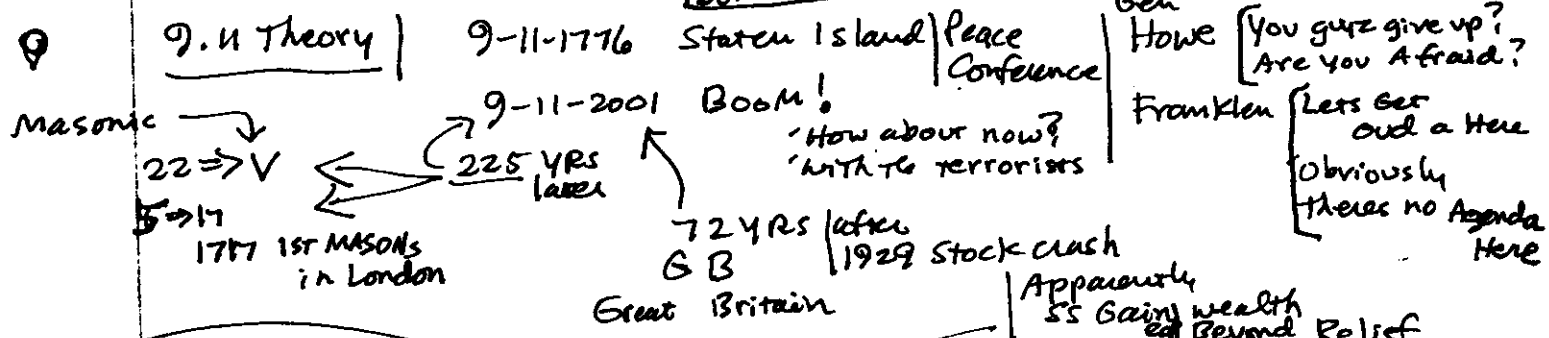 9.11 Theory
9-11-1776 Staten Island
Peace
Conference
Gen
Howe
You guyz give up?
Are you Afraid?
9-11-2001 BOOM!
'How about now?
'with the terrorists
Franklen
Lets Get
oud a Here
Obviously
theres no Agenda
Here
Masonic
22 => V
225 YRS
later
5 => 17
1717 1ST MASONs
in London
72 YRS after
1929 Stock crash
G B
Great Britain
Apparently
SS Gains wealth
Beyond Belief